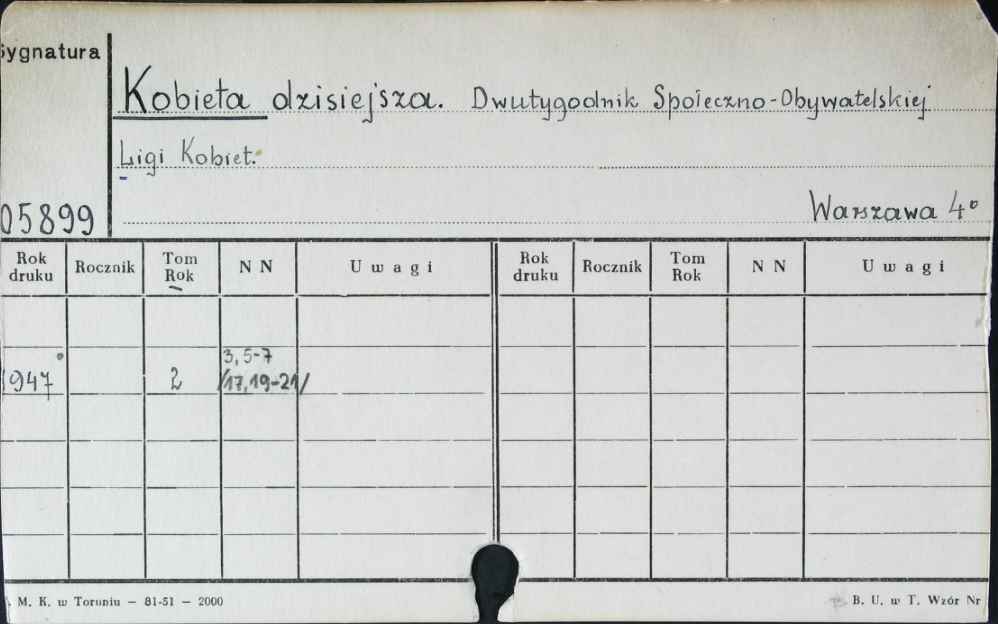 Sygnatura
Kobieta dzisiejsza. Dwutygodnik Społeczno-Obywatelskiej
Ligi Kobiet.
05899
Warszawa 4°
Rok druku Rocznik Tom Rok N N Uwagi Rok druku Rocznik Tom Rok N N Uwagi
3, 5-7
1947 2 /17, 19-21/
M. K. w Toruniu — 81-51 — 2000
B. U. w T. Wzór Nr